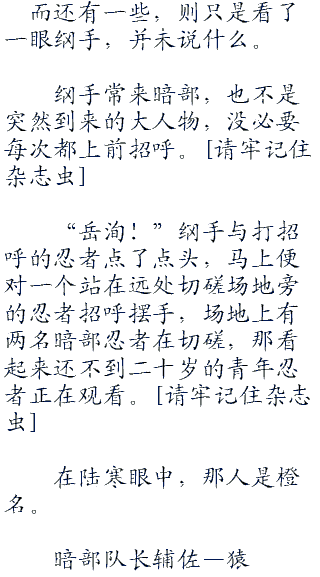 而还有一些，则只是看了
一眼纲手，并未说什么。
纲手常来暗部，也不是
突然到来的大人物，没必要
每次都上前招呼。[请牢记住
杂志虫]
“岳洵！”纲手与打招
呼的忍者点了点头，马上便
对一个站在远处切磋场地旁
的忍者招呼摆手，场地上有
两名暗部忍者在切磋，那看
起来还不到二十岁的青年忍
者正在观看。[请牢记住杂志
虫]
在陆寒眼中，那人是橙
名。
暗部队长辅佐—猿